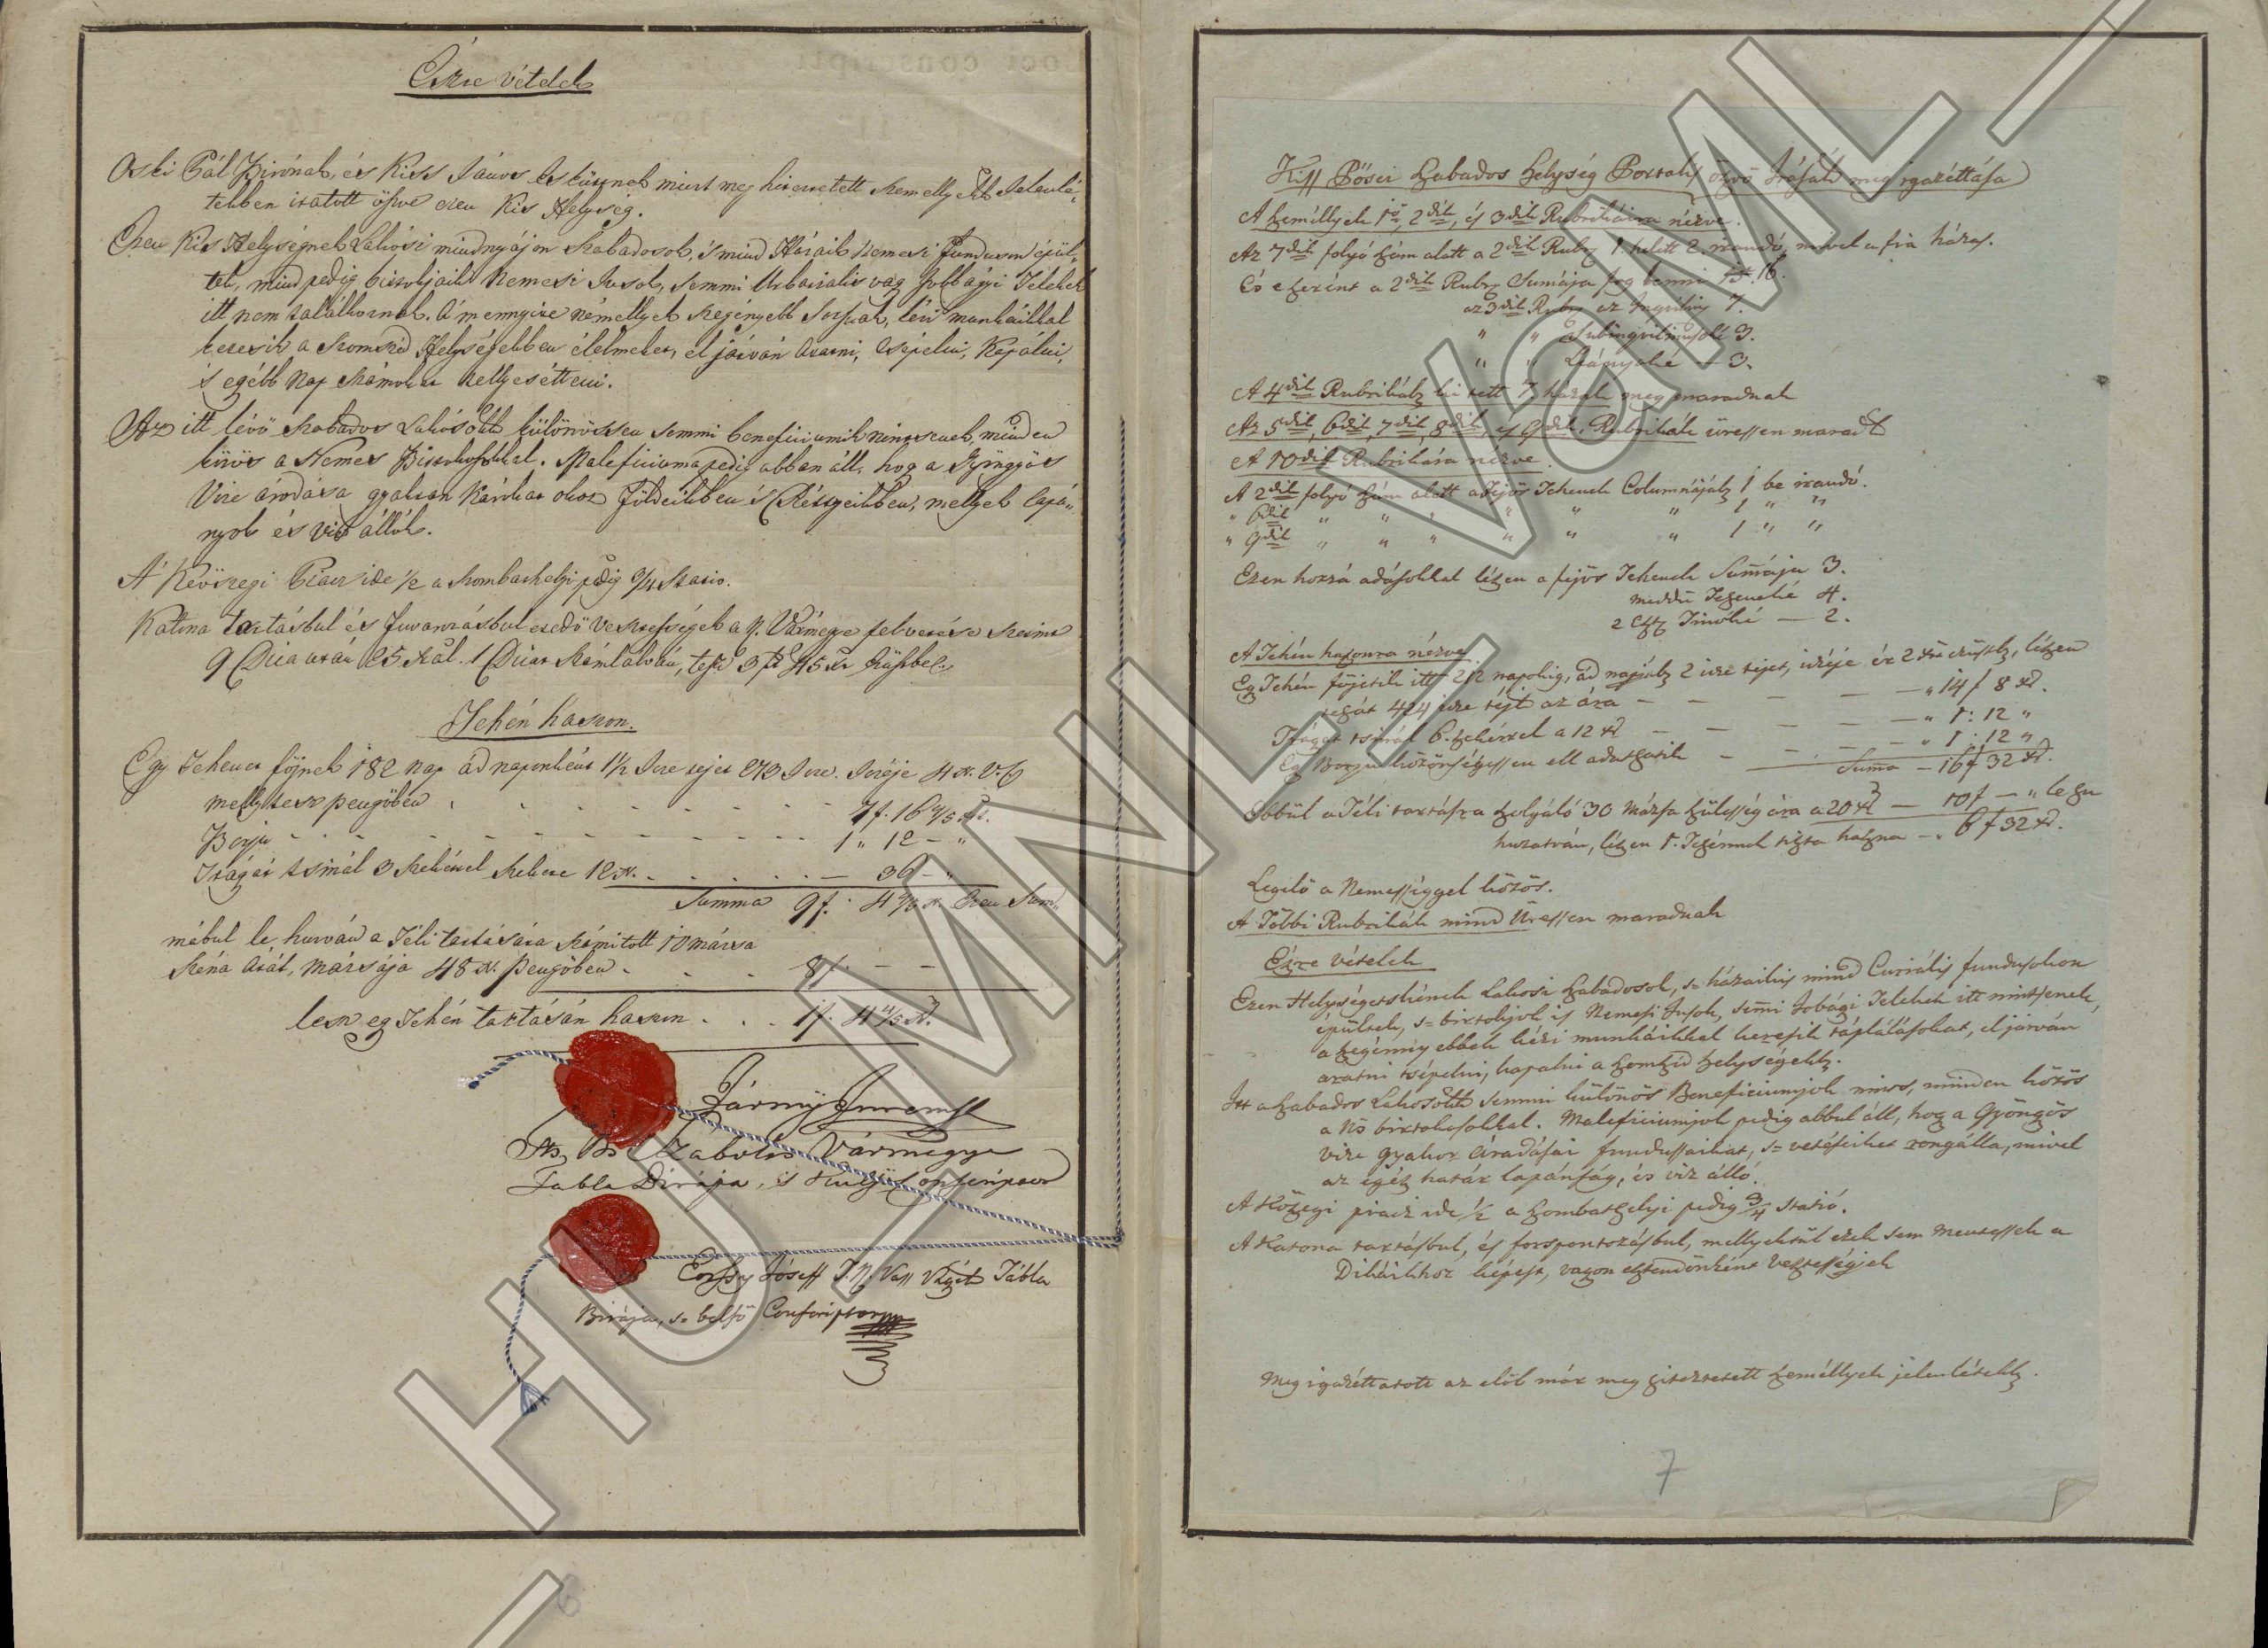 Észre vételek
Oski Pál Birónak, és Kiss János Eskütnek mint meg hitezetett személlyek Jelenlé,,
tekben iratott öszve ezen Kis Helység.
Ezen Kis Helységnek Lakosi mindnyájon Szabadosok, 's mind Házaik Nemesi Funduson épül,,
tek, mind pedig birtokjaik Nemesi Jusok, semmi Urbarialis vag Jobbágyi Telekek
itt nem találtatnak. A mennyire némellyek szegényebb Sorsuak, kézi munkáikkal
keresik a szomszéd Helységekben élelmeket, el járván Aratni, Csépelni, Kapálni,
's egébb Nap számokat
Az itt lévő szabados Lakósokk különössen semmi beneficiumik nintsenek, minden
közös a Nemes Birtokosokkal. Maleficiuma pedig abban áll, hog a Gyöngyös
Vize áradása gyakran károkat okoz Földeikben 's Réttyeikben, mellyek lapá,,
nyok és viz állók.
A' Kőszegi Piacz ide 1/2 a Szombathelyi pedig 3/4 Statio.
Katona tartásbul és Fuvarozásbul eredő veszteségek a N. Vármegye felvetése szerint
9 Dica után 25 Xral. 1 Dicat számlálván, tesz 3 f 45 Xr
Tehén haszon.
Egy Tehenet fejnek 182 nap ád naponként 1 1/2 Icze tejet 273 Icze. Iczéje 4 x. V.Cz
melly tesz pengőben . - - - - - - - 7f. 16 4/5 xr.
Borju - - - - - - - - - - 1 " 12 - "
Trágyát tsinál 3 szekérrel szekere 12 x. . . . . . . — 36 - "
Summa 9f. 4 4/5 x. Ezen Sum,,
mábul le huzván a Téli tartására számitott 10 mázsa
széna árát, mázsája 48 x. pengőben . . . . 8f. — —
lesz eg Tehén tartásán haszon . . . 1f. 4 4/5 xr.
Jármy Imre mk
Szabolcs Vármegye
Tabla Birája, 's külső
József T. N. Vass Vgyei Tábla
Birája, s= belső Conscriptor
Kiss Pősei Szabados Helység Portalis öszvö Irásának meg igazéttása
A Személlyek 1ső, 2dik, és 3dik Rubrikáira nézve.
Az 7dik folyó Szám alatt a 2dik Rubr. 1. helett 2. irandó, mivel a fia házas.
És e szerént a 2dik Rubr. Sumája fog lenni 16.
az 3dik Rubr. az Inquilin 7.
" " Subinquilinusoké 3.
" " Leányoké — 3.
A 4dik Rubrikába ki tett 7 házak meg maradnak
Az 5dik, 6dik, 7dik, 8dik, és 9dik. Rubrikák üressen maradt
A 10dik Rubrikára nézve.
A 2dik folyó Szám alatt a Fejős Tehenek Columnájába 1 be irandó.
" 6dik " " " " " " 1 " "
" 9dik " " " " " " 1 " "
Ezen hozzá adásokkal lészen a fejős Tehenek Sumája 3.
meddü Teheneké 4.
2 eszt. Tinóké — 2.
A Tehén haszonra nézve
Eg Tehén fejetik itt 212 napokig, ád napjába 2 icze tejet, iczéje ér 2 xr ezüstb, lészen
tehát 424 icze téjt az ára — — — — — " 14 f 8 xr.
Trágyát tsinál 6. szekérrel a 12 xr — — — — — " 1 : 12 "
Eg Borju közönségessen ell adattyatik — — — — " 1 : 12 "
Suma — 16 f 32 xr.
Ebbül a Téli tartásra szolgáló 30 mázsa szülesség ára a 20 xr — 10 f — " le
huzatván, lészen 1. Tehénnek tiszta haszna — . 6 f 32 xr.
Legelő a Nemességgel közös.
A Többi Rubrikák mind Üressen maradnak
Észre vételek
Ezen Helységetskének Lakosi Szabadosok, s= házaikis mind Curiális fundusokon
épültek, s= birtokjok is Nemesi Jusok, semi Jobági Telekek itt nintsenek,
a szegénnyebbek kézi munkáikkal keresik táplálásokat, el járván
aratni tsépelni, kapalni a szomszéd helységekb.
Itt a Szabados Lakosokk semmi különös Beneficiumjok nincs, minden közös
a Nös birtokosokkal. Maleficiumjok pedig abbul áll, hog a Gyöngös
vize gyakor áradásai fundussaikat, s= vetéseiket rongálla, mivel
az egész határ lapánság, és viz álló.
A Kőszegi piacz ide 1/2 a Szombathelyi pedig 3/4 statió.
A Katona tartásbul, és forspontozásbul, mellyektül ezek sem mentessek a
Dikáikhoz képest, vagyon esztendőnként veszteségjek
Meg igazéttatott az elöl már meg hiteztetett személlyek jelenlétekb.
7